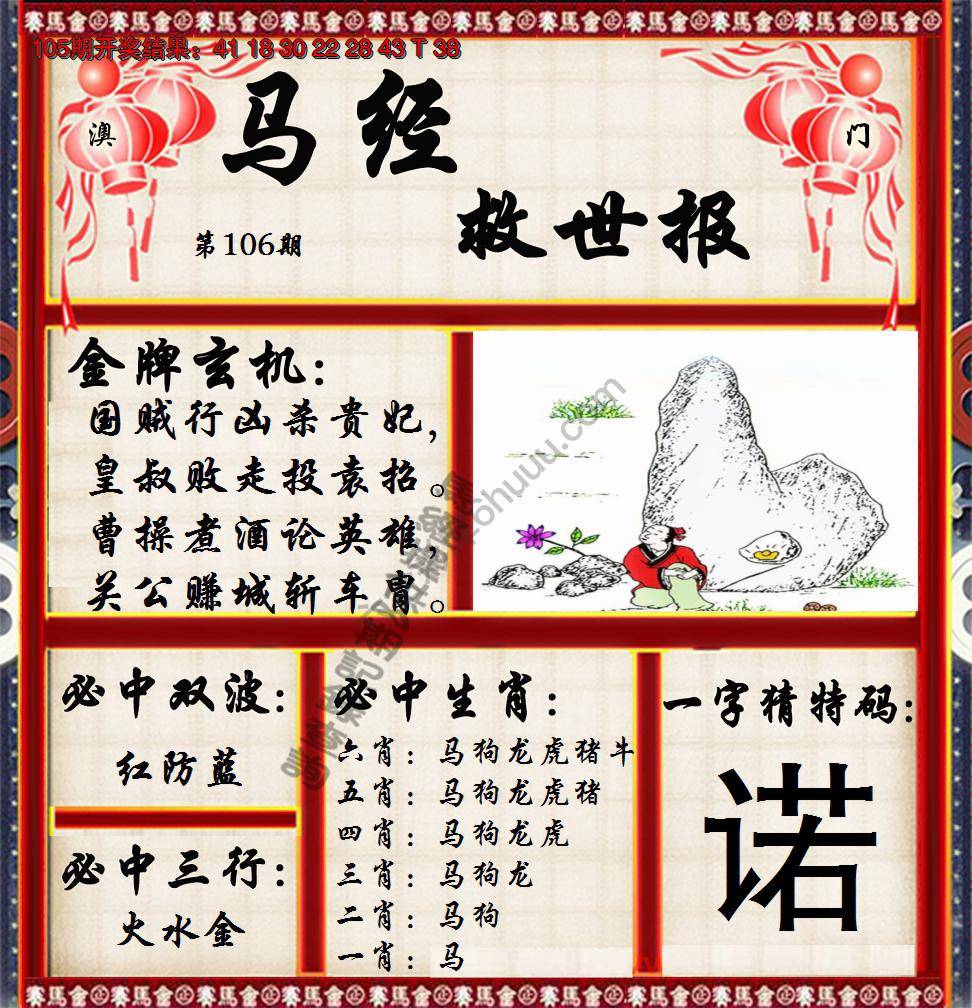 赛马会
105期开奖结果：41 18 30 22 28 43 T 38
澳
门
马经
救世报
第106期
金牌玄机：
国贼行凶杀贵妃，
皇叔败走投袁招。
曹操煮酒论英雄，
关公赚城斩车胄。
必中双波：
红防蓝
必中三行：
火水金
必中生肖：
六肖：马狗龙虎猪牛
五肖：马狗龙虎猪
四肖：马狗龙虎
三肖：马狗龙
二肖：马狗
一肖：马
一字猜特码：
诺